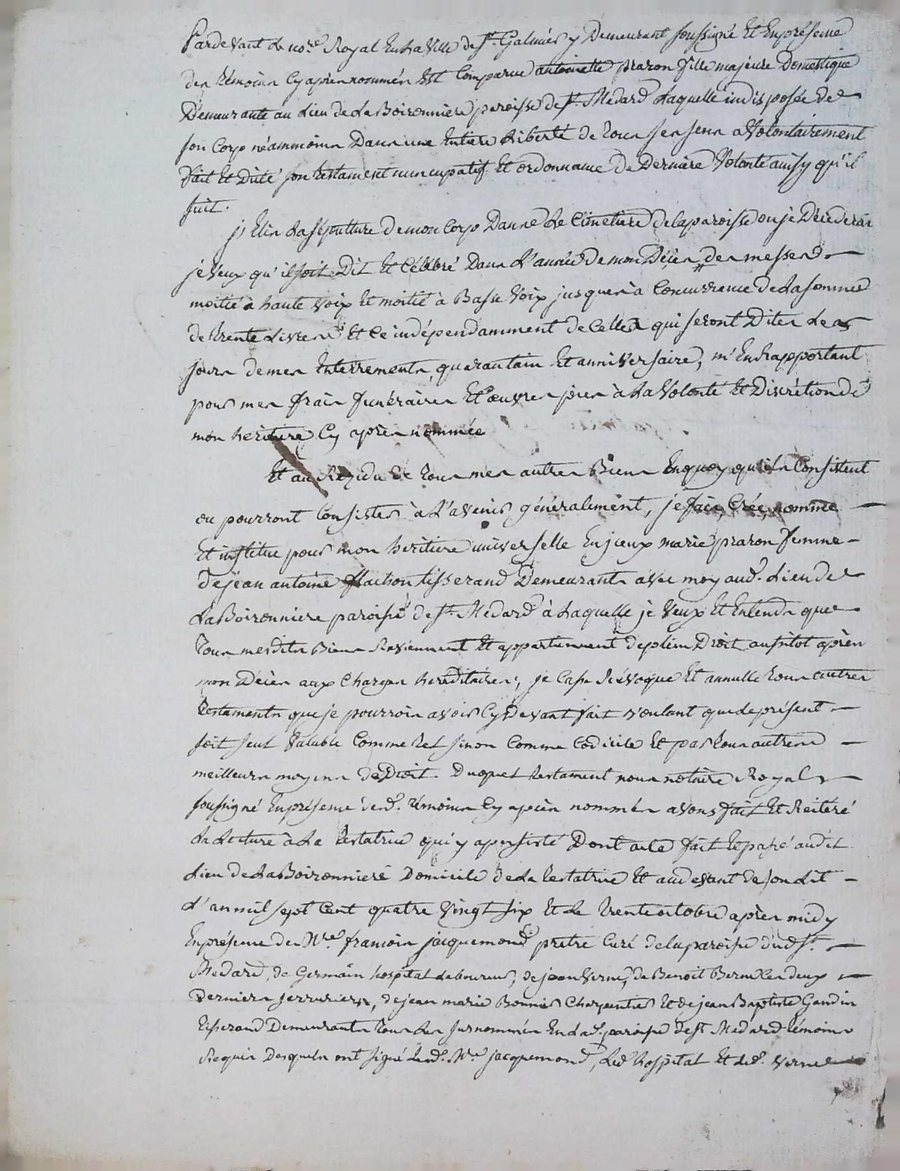 Pardevant le no.re Royal En La Ville de St. Galmier y Demeurant soussigné Et En présence
des témoins Cy après nommés Est Comparue antoinette prazon fille majeure Domestique
Demeurante au Lieu de La Boironniere paroisse de St. Medard Laquelle indisposée de
son Corp néammoins Dans une Entiere Liberté de tous ses sens a Volontairement
fait Et Dicté son testament nuncupatif Et ordonnance de Derniere Volonté ainsy qu'il
suit.
j'Elis La sépulture de mon Corp Dans Le Cimetiere de la paroisse ou je Décéderai
je Veux qu'il soit Dit Et Célébré Dans L'année de mon Décès, des messes
moitié à haute Voix Et moitié à Basse Voix jusques à Concurrence de La somme
de trente Livres Et Ce indépendamment de Celles qui seront Dites Les
jours de mes Enterrements, quarantain Et anniversaire, m'En rapportant
pour mes frais funéraires Et œuvres pies à La Volonté Et Discrétion de
mon héritiere Cy après nommée
Et au Rézidu de tous mes autres Biens En quoy qu'ils Consistent
ou pourront Consister à L'avenir généralement, je fais, Crée, nomme
Et institue pour mon héritiere universelle En jceux marie prazon femme
de jean antoine flachon tisserand Demeurants avec moy aud. Lieu de
La Boironniere paroisse de St. Medard à Laquelle je Veux Et Entends que
tous mesdits Biens Reviennent Et appartiennent de plein Droit aussitot après
mon Décès aux Charges héréditaires, je Casse Révoque Et annulle tous autres
testaments que je pourrois avoir Cy Devant fait Voulant que le présent
soit seul Valable Comme tel sinon Comme Codicile Et par tous autres
meilleurs moyens de Droit. Duquel testament nous notaire Royal
soussigné En présence desd. témoins Cy après nommés avons fait Et Reiteré
La Lecture à La testatrice qui y a persisté Dont acte fait Et passé audit
Lieu de La Boironniere Domicile de La testatrice Et au devant de son Lit
L'an mil sept Cent quatre Vingt six Et Le trente octobre après midy
En présence de Mre. francois jacquemond prêtre Curé de la paroisse dud. St.
Medard, de Germain hospital Laboureur, de jean Verne, de Benoit Verne Ces deux
Derniers serruriers, de jean marie Bonnier Charpentier Et de jean Baptiste Gaudin
tisserand Demeurants tous Les surnommés En lad. paroisse de St. Medard témoins
Requis Desquels ont signé Led. Mre. jacquemond, Led. hospital Et Led. Verne